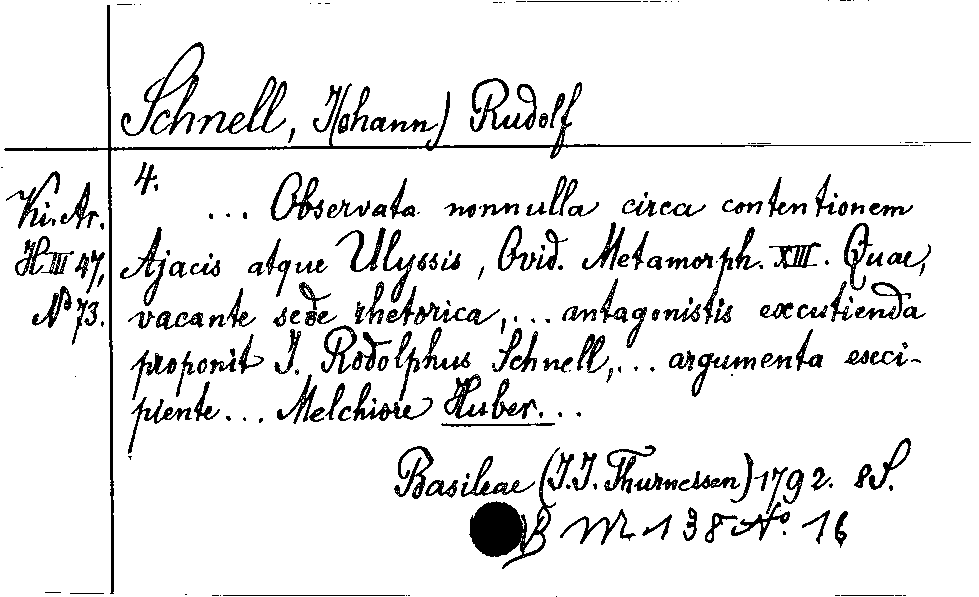 Schnell, J(ohann) Rudolf
4.
Ki. Ar.
H III 47,
No 73.
... Observata nonnulla circa contentionem
Ajacis atque Ulyssis, Ovid. Metamorph. XIII. Quae,
vacante sede rhetorica,... antagonistis excutienda
proponit J. Rodolphus Schnell,... argumenta exci-
piente... Melchiore Huber...
Basileae (J.J. Thurneisen) 1792. 8 S.
B M 138 No. 16